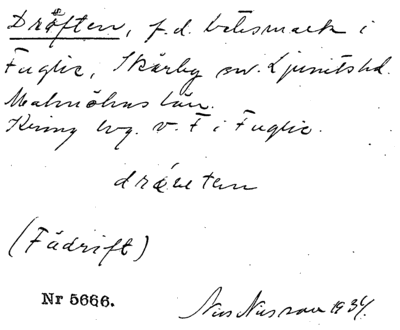 Dröften, f.d. betesmark i
Fuglie, Skårby sn. Ljunits hd.
Malmöhus län.
Kring lvg. v. F i Fuglie.
(Fädrift)
Nr 5666.
Nils Nilsson 1934.